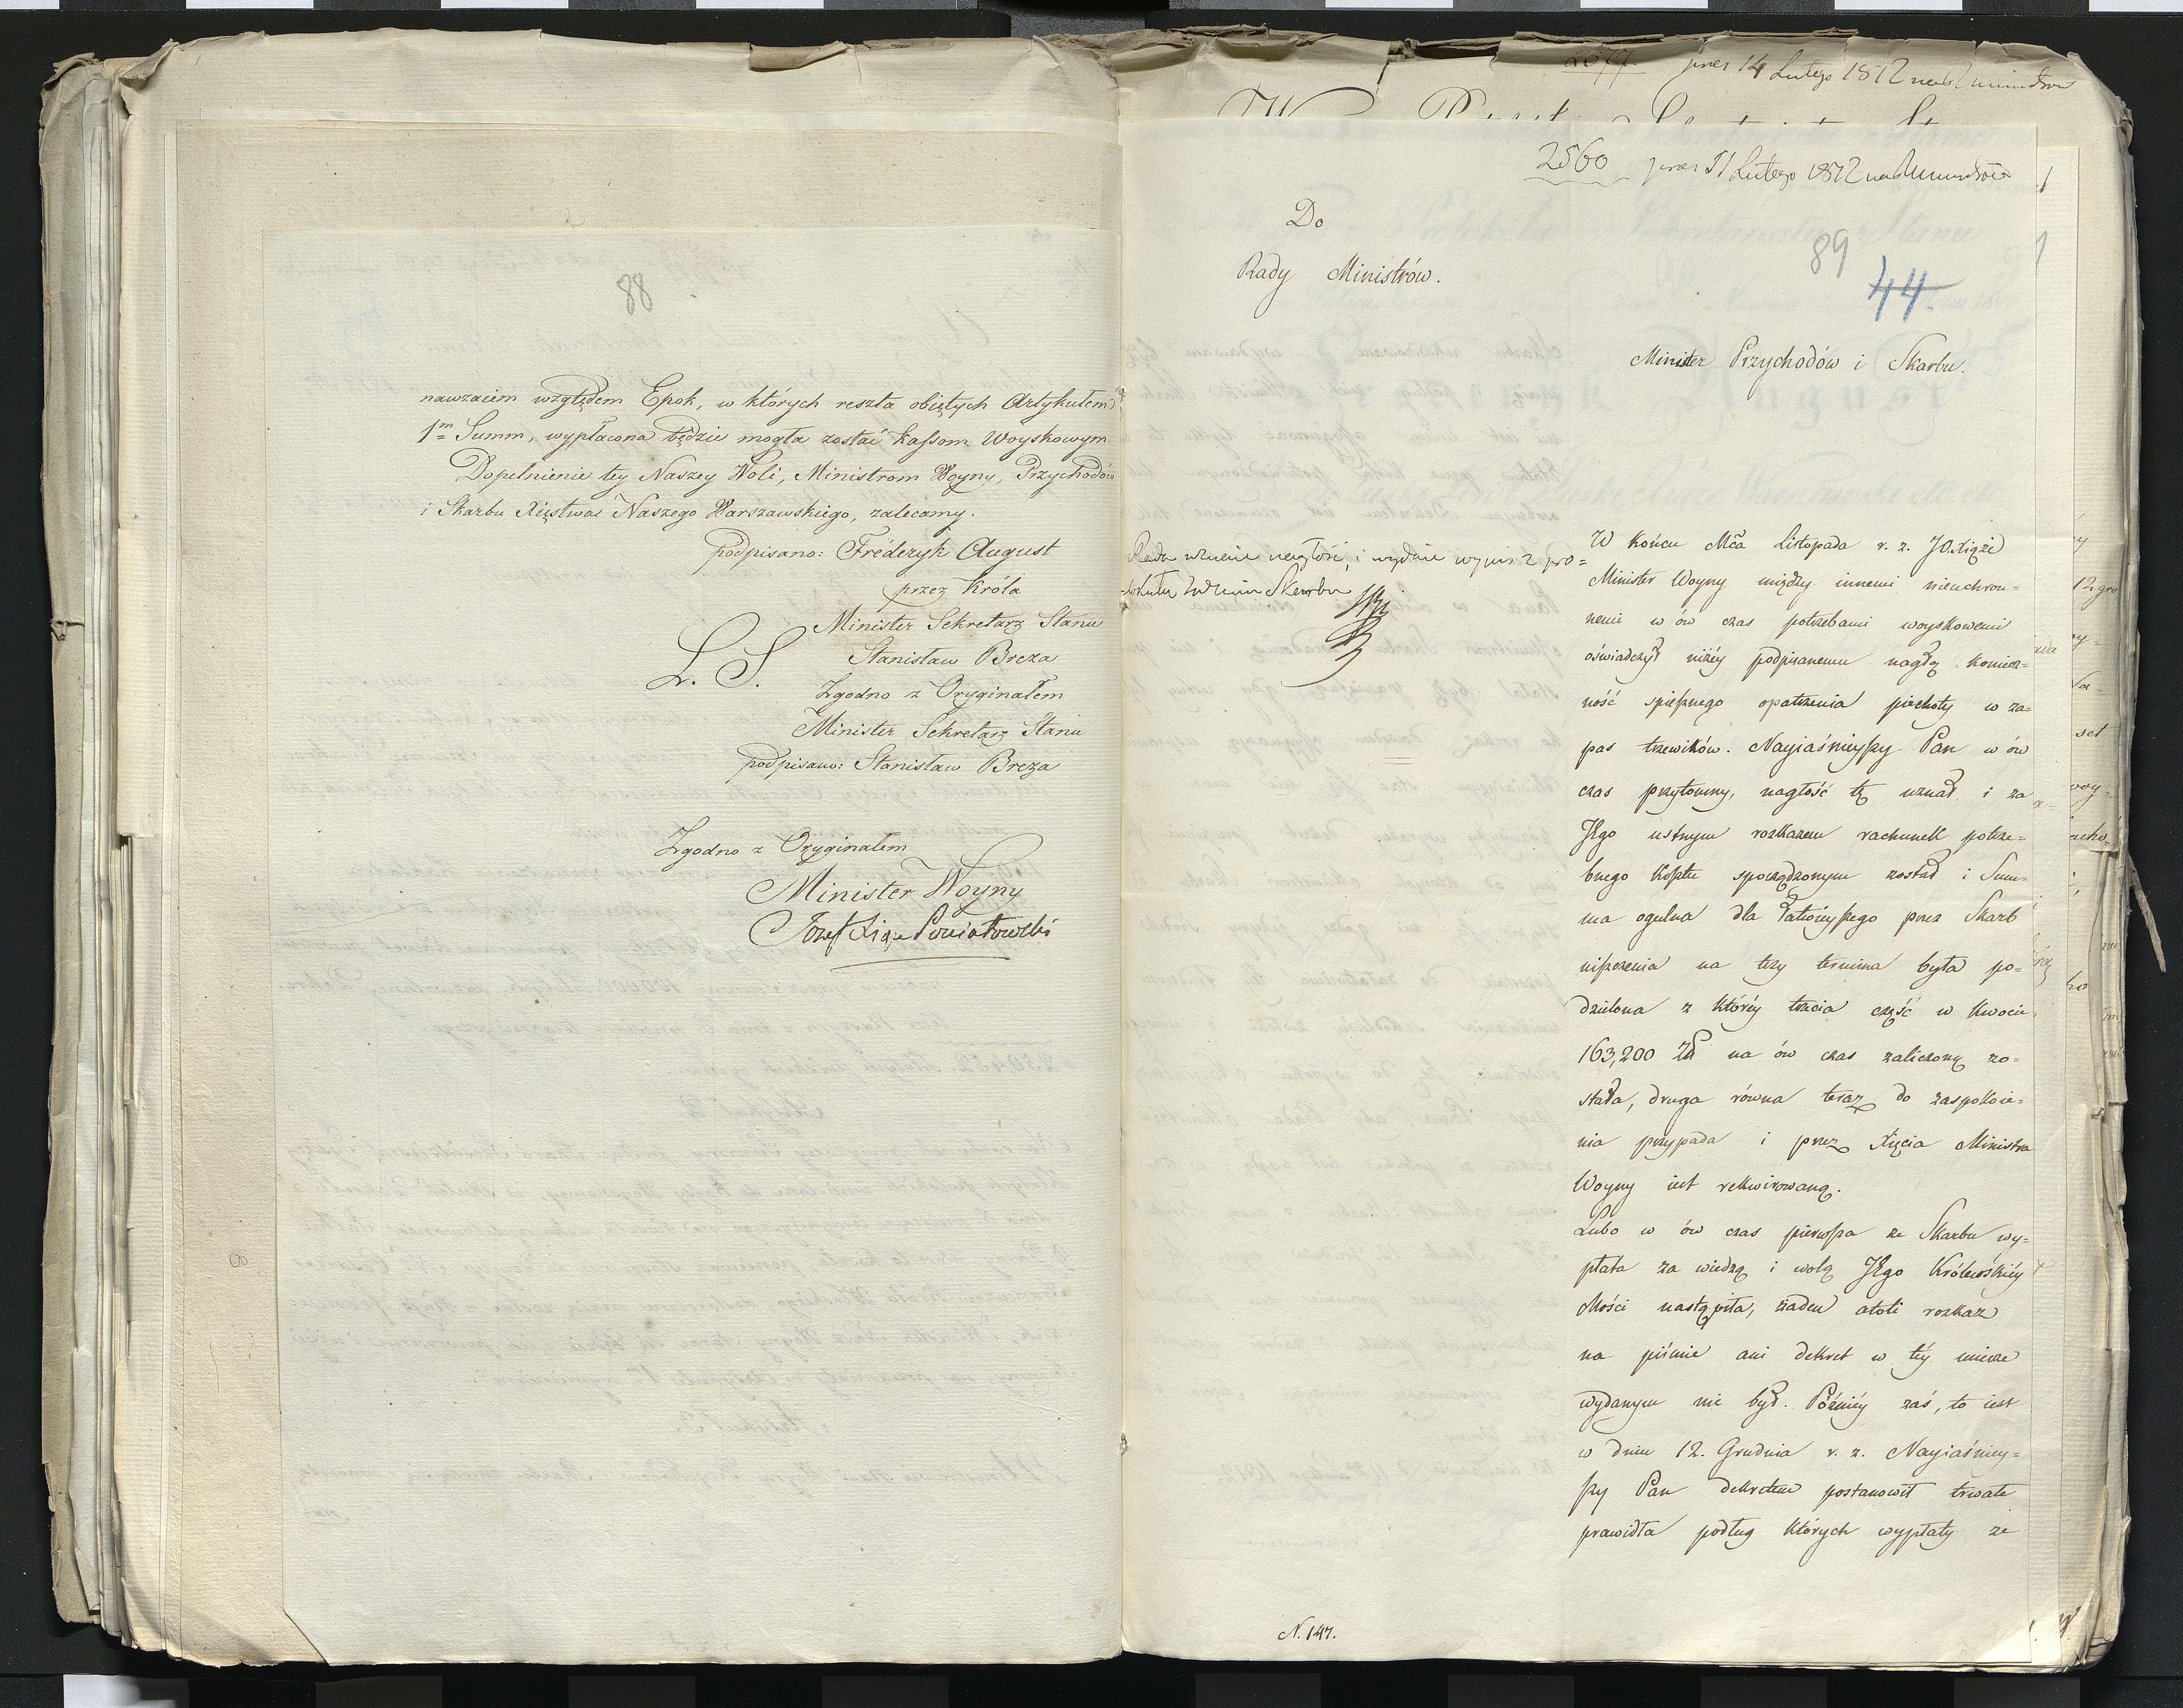 88
nawzaiem względem Epok, w których reszta obiętych Artykułem
1m Summ, wypłacona będzie mogła zostać kassom Woyskowym
Dopełnienie tey Naszey Woli, Ministrom Woyny, Przychodów
i Skarbu Xięstwa Naszego Warszawskiego, zalecamy.
podpisano: Fréderyk August
przez Króla
Minister Sekretarz Stanu
L. S.
Stanisław Breza
Zgodno z Oryginałem
Minister Sekretarz Stanu
podpisano: Stanisław Breza
Zgodno z Oryginałem
Minister Woyny
Józef Xiąże Poniatowski
14 Lutego 1812
2560 11 Lutego 1812
Do
Rady Ministrów.
89
44
Minister Przychodów i Skarbu.
Rada uznaie nagłość, i wydaie wypis z pro=
Skarbu
W końcu Mca Listopada r. z. JO Xiąże
Minister Woyny między innemi nieuchron=
nemi w ów czas potrzebami woyskowemi
oświadczył niżéy podpisanemu nagłą koniecz=
ność spiesznego opatrzenia piechoty w za=
pas trzewików. Nayiaśnieyszy Pan w ów
czas przytomny, nagłość tę uznał i za
JEgo ustnym rozkazem rachunek potrze=
bnego kosztu sporządzonym został i Sum=
ma ogulna dla łatwieyszego przez Skarb
niszczenia na trzy termina była po=
dzielona z któréy trzecia część w kwocie
163,200 Zł na ów czas zaliczoną zo=
stała, druga równa teraz do zaspokoie=
nia przypada i przez Xięcia Ministra
Woyny iest rekwirowaną.
Lubo w ów czas pierwsza ze Skarbu wy=
płata za wiedzą i wolą JEgo Królewskiéy
Mości nastąpiła, żaden atoli rozkaz
na piśmie ani dekret w téy mierze
wydanym nie był. Późniéy zaś, to iest
w dniu 12. Grudnia r. z. Nayiaśniey=
szy Pan dekretem postanowił trwałe
prawidła podług których wypłaty ze
N. 147.